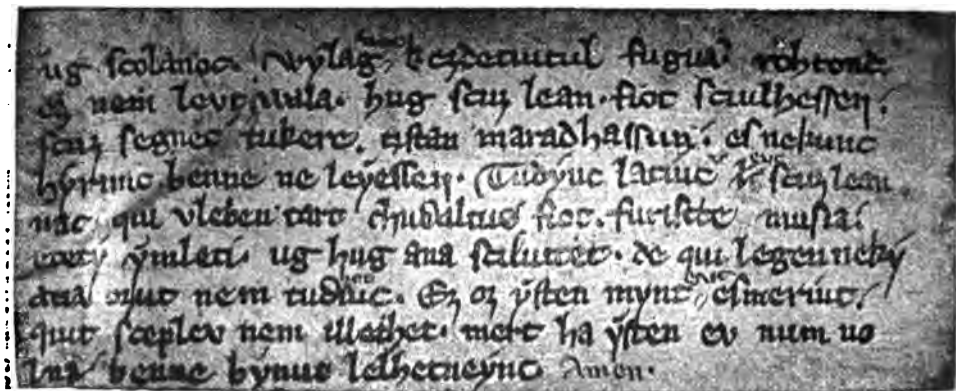 ug scolanoc. wylag kezdetuitul fugua rohtonc
ez nem levt vvla. hug scuz lean. fiot sciulhessen.
scuz segnec tukere. tistan maradhassun. es nekunc
hyrunc benne ne leyessen. Tudyuc latiuc scuz lean
nac. qui vleben tart chudaltus fiot. furiscte musia.
etety ymleti. ug hug ana sciluttet. de qui legen neky
atia ozut nem tudhuc. Ez oz ysten mynt esmeriuc.
quit sceplev nem illethet. mert ha ysten ev num uo
lna benne bynut lelhetneync Amen.